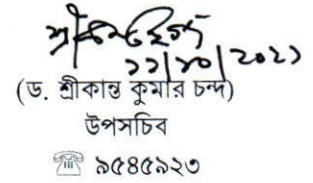 ১১/১০/২০২১
(ড. শ্রীকান্ত কুমার চন্দ)
উপসচিব
☎ ৯৫৪৫৯২৩